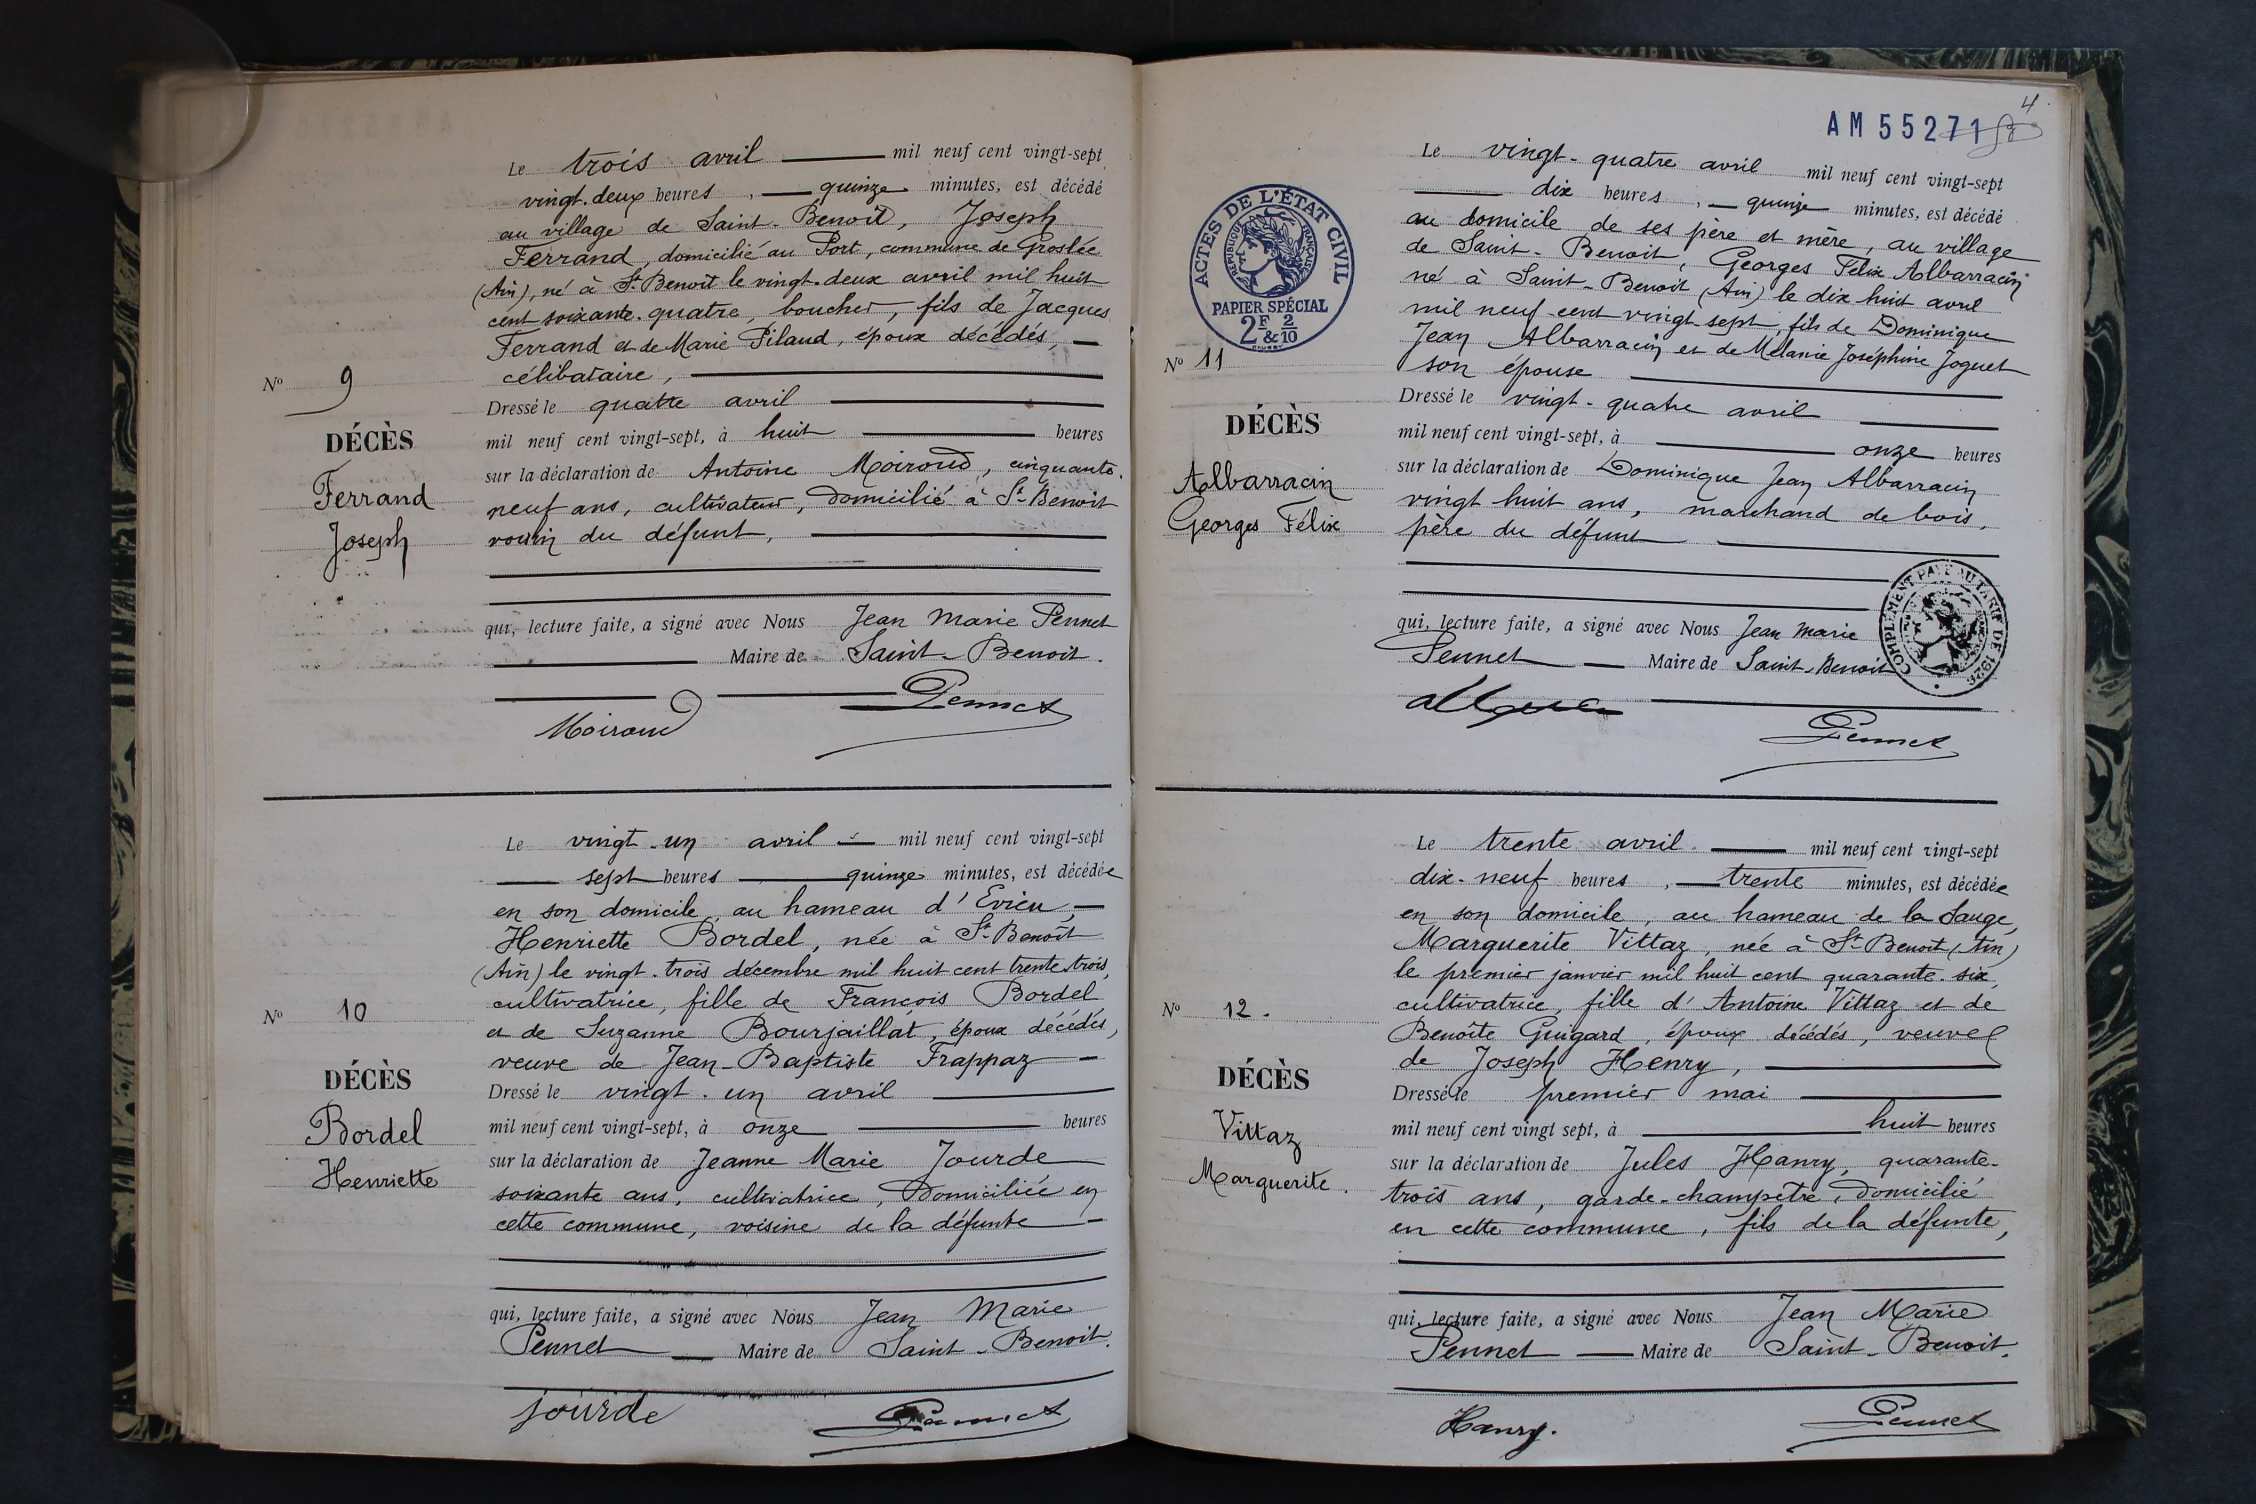 Le trois avril mil neuf cent vingt-sept
vingt-deux heures, quinze minutes, est décédé
au village de Saint-Benoit, Joseph
Ferrand, domicilié au Port, commune de Groslée
(Ain), né à St Benoît le vingt-deux avril mil huit
cent soixante-quatre, boucher, fils de Jacques
Ferrand et de Marie Pilaud, époux décédés,
célibataire,
Nº 9
DÉCÈS
Ferrand
Joseph
Dressé le quatre avril
mil neuf cent vingt-sept, à huit heures
sur la déclaration de Antoine Moiroud, cinquante-
neuf ans, cultivateur, domicilié à St-Benoit
voisin du défunt,
qui, lecture faite, a signé avec Nous Jean Marie Pennet
Maire de Saint-Benoit.
Moiroud Pennet
Le vingt-un avril mil neuf cent vingt-sept
sept heures quinze minutes, est décédée
en son domicile, au hameau d'Evieu,
Henriette Bordel, née à St-Benoît
(Ain) le vingt-trois décembre mil huit cent trente-trois,
cultivatrice, fille de François Bordel
et de Suzanne Bourjaillat, époux décédés,
veuve de Jean-Baptiste Frappaz
Nº 10
DÉCÈS
Bordel
Henriette
Dressé le vingt-un avril
mil neuf cent vingt-sept, à onze heures
sur la déclaration de Jeanne Marie Jourde
soixante ans, cultivatrice, domiciliée en
cette commune, voisine de la défunte
qui, lecture faite, a signé avec Nous Jean Marie
Pennet Maire de Saint-Benoit.
jourde Pennet
4
AM 55271
ACTES DE L'ÉTAT CIVIL
RÉPUBLIQUE FRANÇAISE
PAPIER SPÉCIAL
2F & 2/10
Le vingt-quatre avril mil neuf cent vingt-sept
dix heures, quinze minutes, est décédé
au domicile de ses père et mère, au village
de Saint-Benoit, Georges Félix Albarracin
né à Saint-Benoit (Ain) le dix huit avril
mil neuf cent vingt sept, fils de Dominique
Jean Albarracin et de Mélanie Joséphine Joguet
son épouse
Nº 11
DÉCÈS
Albarracin
Georges Félix
Dressé le vingt-quatre avril
mil neuf cent vingt-sept, à onze heures
sur la déclaration de Dominique Jean Albarracin
vingt huit ans, marchand de bois,
père du défunt
qui, lecture faite, a signé avec Nous Jean Marie
Pennet Maire de Saint-Benoit
COMPLÉMENT PAYÉ AU TARIF DE 1926
Pennet
Le trente avril mil neuf cent vingt-sept
dix-neuf heures, trente minutes, est décédée
en son domicile, au hameau de la Sauge,
Marguerite Vittaz, née à St-Benoit (Ain)
le premier janvier mil huit cent quarante-six,
cultivatrice, fille d'Antoine Vittaz et de
Benoîte Guigard, époux décédés, veuve
de Joseph Henry,
Nº 12.
DÉCÈS
Vittaz
Marguerite.
Dressé le premier mai
mil neuf cent vingt sept, à huit heures
sur la déclaration de Jules Hanry, quarante-
trois ans, garde-champêtre, domicilié
en cette commune, fils de la défunte,
qui, lecture faite, a signé avec Nous Jean Marie
Pennet Maire de Saint-Benoit.
Hanry. Pennet